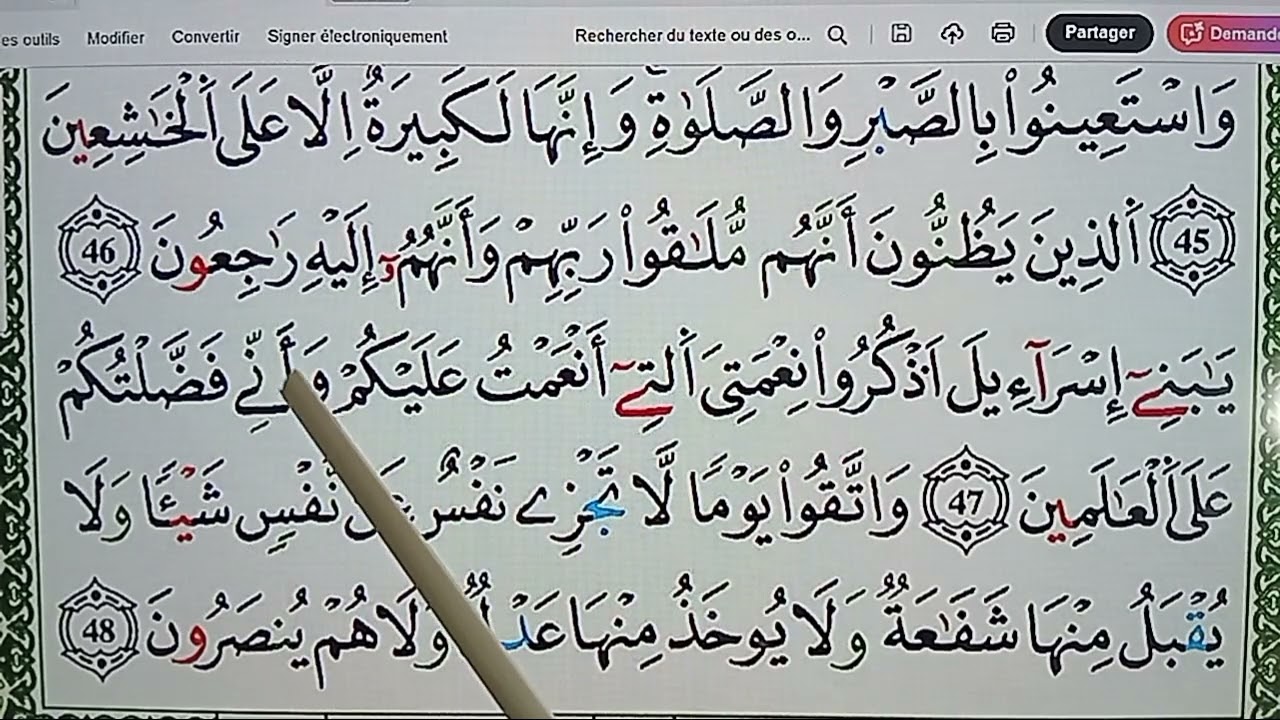 es outils Modifier Convertir Signer électroniquement Rechercher du texte ou des o... Partager Demande
وَاسْتَعِينُواْ بِالصَّبْرِ وَالصَّلَوٰةِ وَإِنَّهَا لَكَبِيرَةٌ اِلَّا عَلَى اَلْخَٰشِعِينَ
45 اَلذِينَ يَظُنُّونَ أَنَّهُم مُّلَٰقُواْ رَبِّهِمْ وَأَنَّهُمُۥٓ إِلَيْهِ رَٰجِعُونَ 46
يَٰبَنِےٓ إِسْرَآءِيلَ اَذْكُرُواْ نِعْمَتِىَ اَلتِےٓ أَنْعَمْتُ عَلَيْكُمْ وَأَنِّے فَضَّلْتُكُمْ
عَلَى اَلْعَٰلَمِينَ 47 وَاتَّقُواْ يَوْمًا لَّا تَجْزِے نَفْسٌ نَّفْسٍ شَيْـًٔا وَلَا
يُقْبَلُ مِنْهَا شَفَٰعَةٌ وَلَا يُوخَذُ مِنْهَا عَدْلٌ وَلَا هُمْ يُنصَرُونَ 48